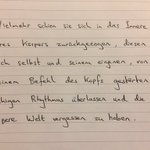 Vielmehr schien sie sich in das Innere
ihres Körpers zurückgezogen, diesen
sich selbst und seinem eigenen, von
keinem Befehl des Kopfs gestörten
ruhigen Rhythmus überlassen und die
obere Welt vergessen zu haben.